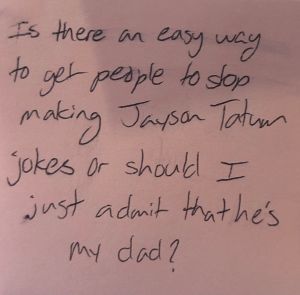 Is there an easy way
to get people to stop
making Jayson Tatum
jokes or should I
just admit that he's
my dad?